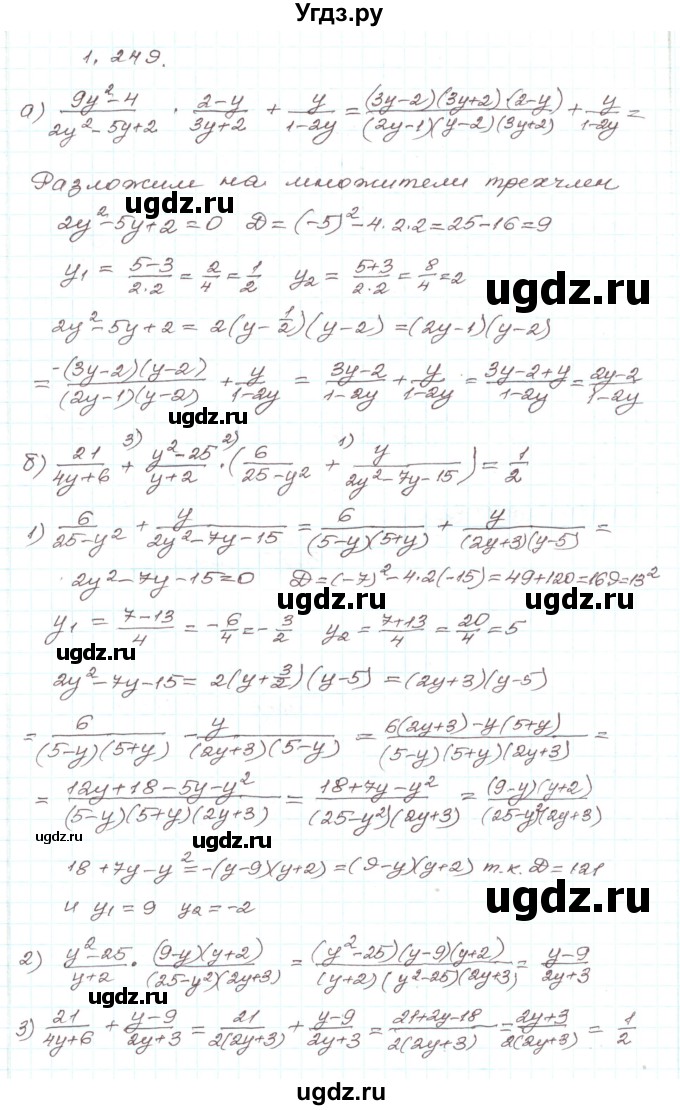 Угдз.ру
1.249.
а) (9y²-4)/(2y²-5y+2) · (2-y)/(3y+2) + y/(1-2y) = ((3y-2)(3y+2)·(2-y))/((2y-1)(y-2)(3y+2)) + y/(1-2y) =
Разложим на множители трехчлен
ugdz.ru
2y²-5y+2=0 D=(-5)²-4·2·2=25-16=9
y₁ = (5-3)/(2·2) = 2/4 = 1/2 y₂ = (5+3)/(2·2) = 8/4 = 2
ugdz.ru
2y²-5y+2 = 2(y-1/2)(y-2) = (2y-1)(y-2)
= (-(3y-2)(y-2))/((2y-1)(y-2)) + y/(1-2y) = (3y-2)/(1-2y) + y/(1-2y) = (3y-2+y)/(1-2y) = (2y-2)/(1-2y)
ugdz.ru
б) 21/(4y+6) +³⁾ (y²-25)/(y+2) ·²⁾ (6/(25-y²) +¹⁾ y/(2y²-7y-15)) = 1/2
1) 6/(25-y²) + y/(2y²-7y-15) = 6/((5-y)(5+y)) + y/((2y+3)(y-5)) =
2y²-7y-15=0 D=(-7)²-4·2(-15)=49+120=169=13²
ugdz.ru ugdz.ru
y₁ = (7-13)/4 = -6/4 = -3/2 y₂ = (7+13)/4 = 20/4 = 5
ugdz.ru
2y²-7y-15 = 2(y+3/2)(y-5) = (2y+3)(y-5)
= 6/((5-y)(5+y)) - y/((2y+3)(5-y)) = (6(2y+3)-y(5+y))/((5-y)(5+y)(2y+3)) =
= (12y+18-5y-y²)/((5-y)(5+y)(2y+3)) = (18+7y-y²)/((25-y²)(2y+3)) = ((9-y)(y+2))/((25-y²)(2y+3))
ugdz.ru ugdz.ru
18+7y-y²=-(y-9)(y+2)=(9-y)(y+2) т.к. D=121
ugdz.ru
и y₁=9 y₂=-2
2) (y²-25)/(y+2) · ((9-y)(y+2))/((25-y²)(2y+3)) = ((y²-25)(y-9)(y+2))/((y+2)(y²-25)(2y+3)) = (y-9)/(2y+3)
ugdz.ru
3) 21/(4y+6) + (y-9)/(2y+3) = 21/(2(2y+3)) + (y-9)/(2y+3) = (21+2y-18)/(2(2y+3)) = (2y+3)/(2(2y+3)) = 1/2
ugdz.ru
ugdz.ru